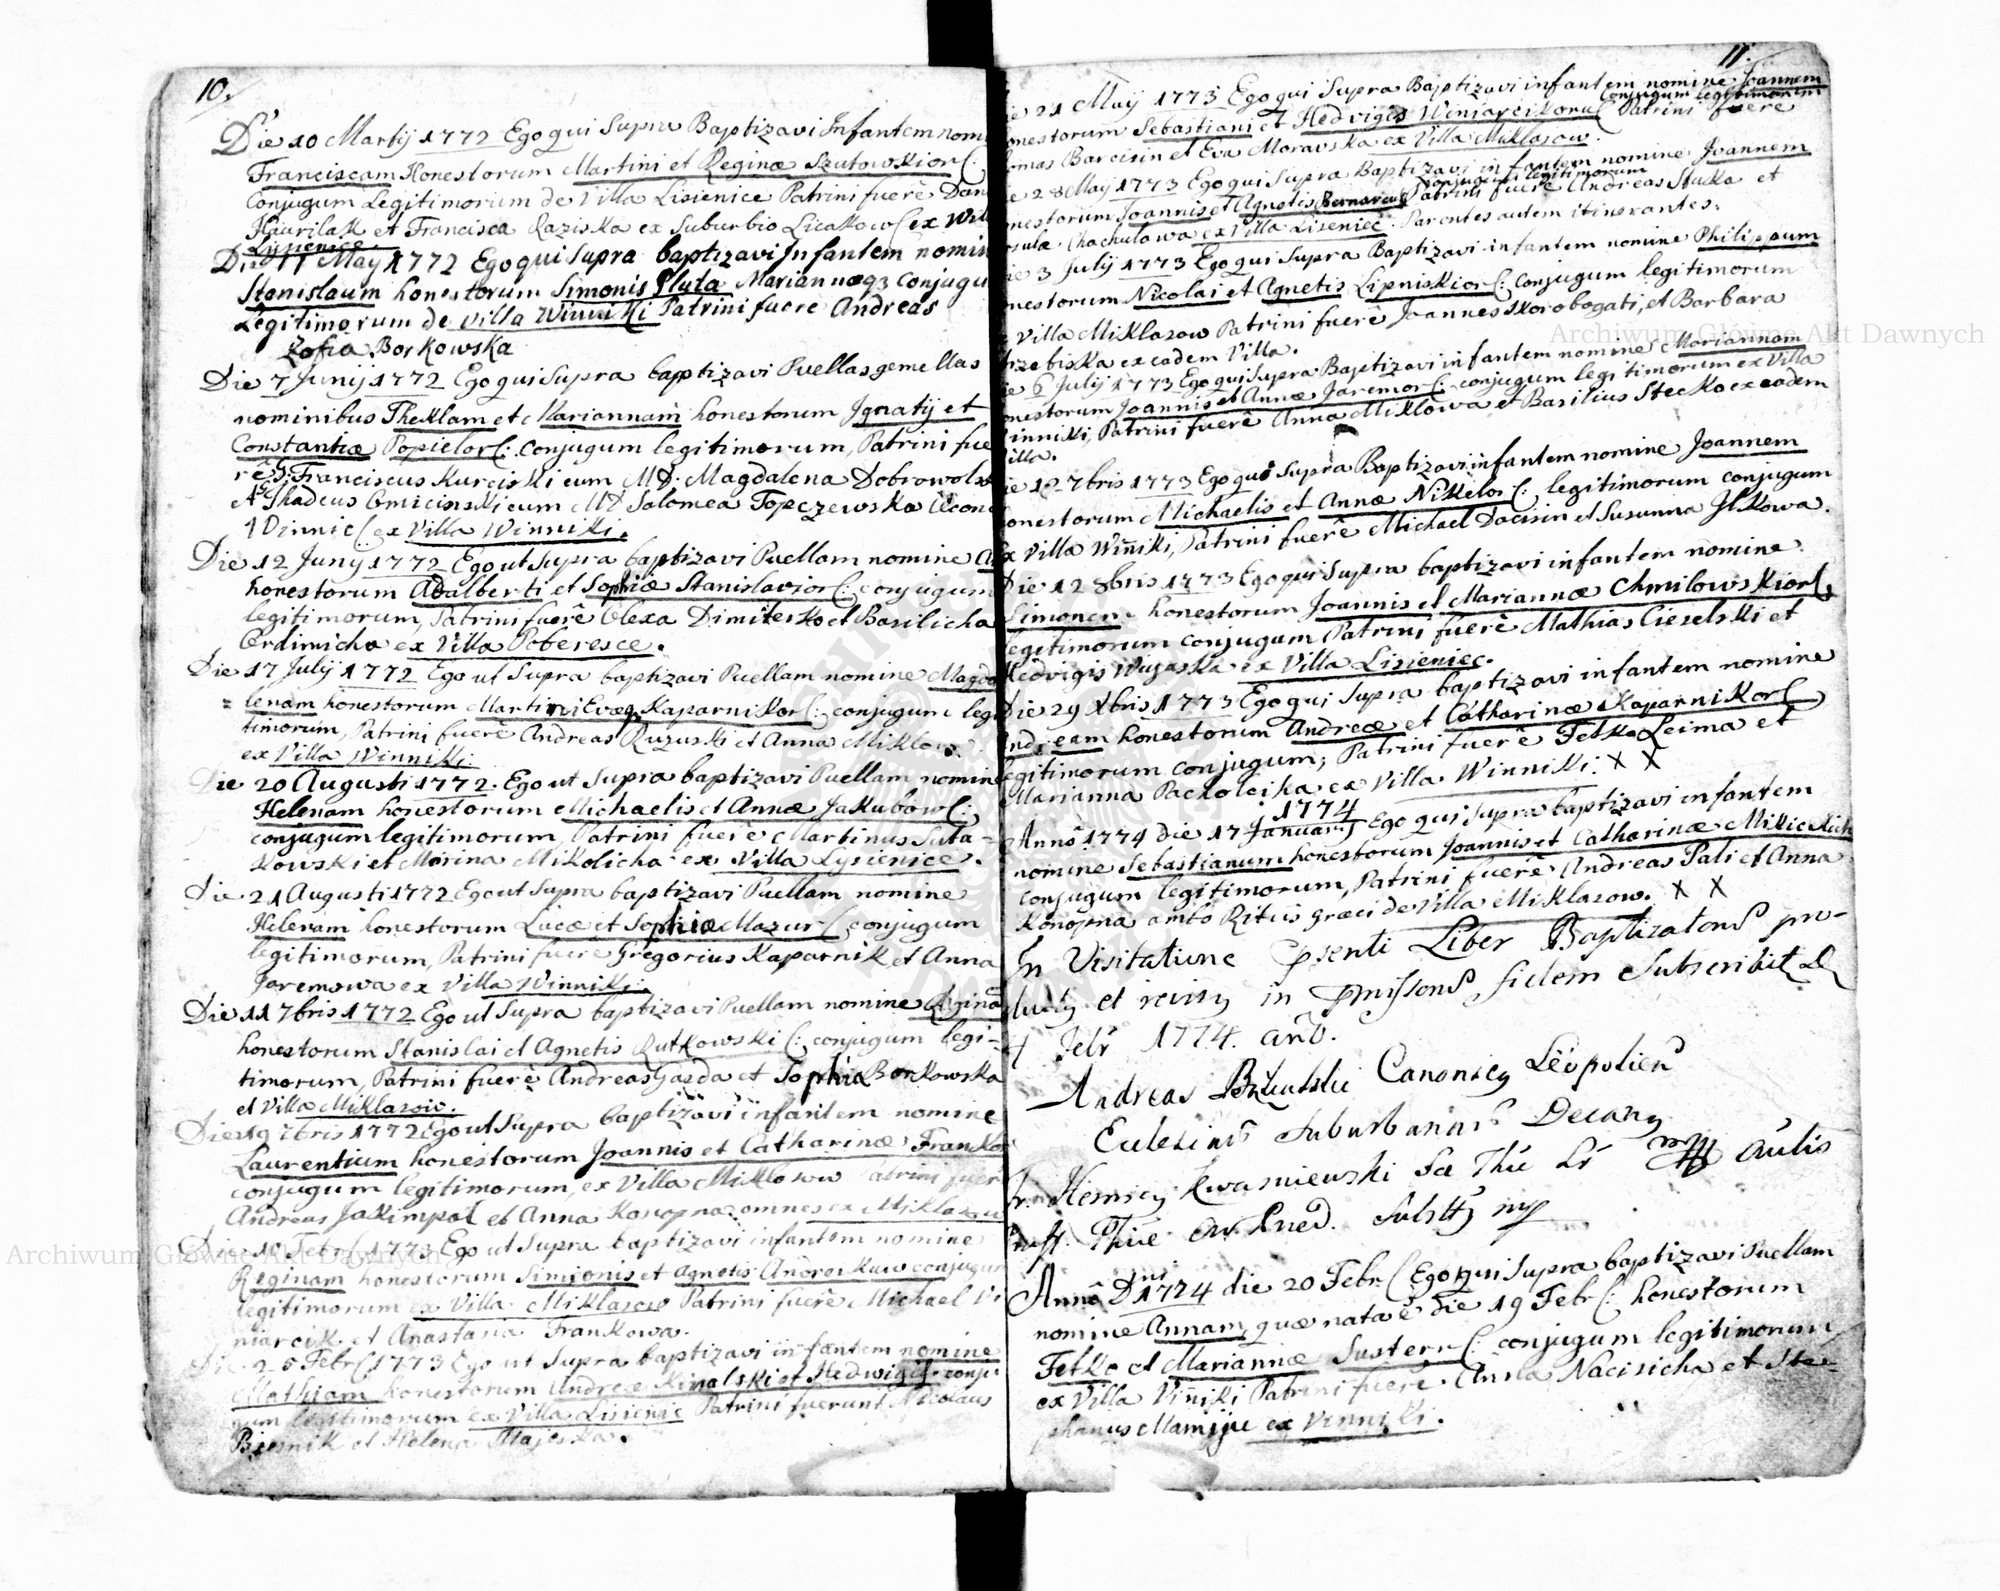 10.
Die 10 Martij 1772 Ego qui Supra Baptizavi Infantem nomi
Franciscam Honestorum Martini et Reginæ Szutowskior(:
Conjugum Legitimorum de Villa Lisienice Patrini fuerê Dan
Haurilak et Francisca Raziska ex Suburbio Licakow( ex Vill
Lisienice.
Die 11 May 1772 Ego qui Supra baptizavi Infantem nomin
Stanislaum honestorum Simonis Pluta Mariannæq3 conjugu
Legitimorum de Villa Winniki Patrini fuerê Andreas
Zofia Borkowska
Die 7 Junij 1772 Ego qui Supra baptizavi Puellas gemellas
nominibus Theklam et Mariannam honestorum Ignatij et
Constantiæ Popielor(: conjugum legitimorum, Patrini fue
rê G: Franciscus Kurciski cum MD: Magdalena Dobrowolsk
et Thadeus Cmicinski cum MD Salomea Topczewska Œcon
Winnic(: ex Villa Winniki.
Die 12 Juny 1772 Ego ut Supra baptizavi Puellam nomine A
honestorum Adalberti et Sophiæ Stanislavior(: conjugum
legitimorum, Patrini fuerê Olexa Dimitersko et Basilicha
Ordimicha ex Villa Poberesce.
Die 17 July 1772 Ego ut Supra baptizavi Puellam nomine Magda
= lenam honestorum Martini Evæq Kaparnikor(: conjugum legi
timorum, Patrini fuerê Andreas Ruzuski et Anna Miklow
ex Villa Winniki:
Die 20 Augusti 1772. Ego ut Supra baptizavi Puellam nomine
Helenam honestorum Michaelis et Annæ Jakubow(:
conjugum legitimorum, Patrini fuerê Martinus Suta-
kowski et Marina Mikolicha ex Villa Lysienice.
Die 21 Augusti 1772 Ego ut Supra baptizavi Puellam nomine
Helenam honestorum Lucæ et Sophiæ Mazur( conjugum
legitimorum, Patrini fuerê Gregorius Kaparnik et Anna
Jaremowa ex Villa Winniki:
Die 11 7bris 1772 Ego ut Supra baptizavi Puellam nomine Reginam
honestorum Stanislai et Agnetis Rutkowski(: conjugum legi-
timorum, Patrini fuerê Andreas Gazda et Sophia Borkowska
et Villa Miklasow.
Die 19 7bris 1772 Ego ut Supra baptizavi infantem nomine
Laurentium honestorum Joannis et Catharinæ Franko
conjugum legitimorum, ex Villa Miklosow Patrini fuer
Andreas Jakimpol et Anna Konopna omnes ex Miklasow
Die 10 Febr( 1773 Ego ut Supra baptizavi infantem nomine
Reginam honestorum Simionis et Agnetis Andrerkuw conjugu
legitimorum ex Villa Miklasow Patrini fuerê Michael Vi
niarcik et Anastasia Frankowa.
Die 25 Febr( 1773 Ego ut Supra baptizavi infantem nomine
Mathijam honestorum Andreæ Kinalski et Hedwigis conju
gum legitimorum ex Villa Lisienic Patrini fuerunt Nicolaus
Biesnik et Helena Majeska.
11.
ie 21 Maij 1773 Ego qui Supra Baptizavi infantem nomine Joannem
conjugum legitimorum
onestorum Sebastiani et Hedvigis Winiarcikonu( Patrini fuerê
omas Barcisin et Eva Moravska ex Villa Miklasow.
e 28 Maij 1773 Ego qui Supra Baptizavi infantem nomine Joannem
conjugum legitimorum
nestorum Joannis et Agnetis Bernarcu( Patrini fuerê Andreas Stuka et
rsula Chachulowa ex Villa Liseniec. Parentes autem itinerantes.
ie 3 July 1773 Ego qui Supra Baptizavi infantem nomine Philippum
nestorum Nicolai et Agnetis Lipniskior(: conjugum legitimorum
Villa Miklasow Patrini fuerê Joannes Skorobogati, et Barbara
rzebiska ex eadem Villa.
ie 6 July 1773 Ego qui Supra Baptizavi infantem nomine Mariannam
onestorum Joannis et Annæ Jaremor(: conjugum legitimorum ex Villa
inniki, Patrini fuerê Anna Miklowa et Basilius Stecko ex eadem
illa.
ie 12 7bris 1773 Ego qui Supra Baptizavi infantem nomine Joannem
onestorum Michaelis et Annæ Nikelor(: legitimorum conjugum
x Villa Winniki, Patrini fuerê Michael Dacisin et Susanna Ilkowa.
Die 12 8bris 1773 Ego qui Supra baptizavi infantem nomine
Simonem honestorum Joannis et Mariannæ Chmilowskior(
legitimorum conjugum Patrini fuerê Mathias Cieselski et
Hedvigis Wujaska ex Villa Lisieniec.
Die 29 Xbris 1773 Ego qui Supra baptizavi infantem nomine
Andream honestorum Andreæ et Catharinæ Kaparnikor(
legitimorum conjugum; Patrini fuerê Fetko Leima et
Marianna Pacholcika ex Villa Winniki: X X
1774
Annô 1774 die 17 January Ego qui Supra baptizavi infantem
nomine Sebastianum honestorum Joannis et Catharinæ Mikiewich
conjugum legitimorum, Patrini fuerê Andreas Pali et Anna
Konopna ambo Ritus Græci de Villa Miklasow. X X
In Visitatione Psenti Liber Baptizatorum pro-
in fidem Subscribit
4 Febr 1774. anô.
Andreas Canonicq Leopolien
Decanq
Henricq Kwasniewski Aulis
Annô Dni 1774 die 20 Febr( Ego qui Supra baptizavi Puellam
nomine Annam, quæ nata ê die 19 Febr(: honestorum
Fetko et Mariannæ Sustern(: conjugum legitimorum
ex Villa Viñiki Patrini fuerê Anna Nacisicha et Ste-
phanus Mamijui ex Vinniki.
Archiwum Główne Akt Dawnych
Archiwum Główne Akt Dawnych